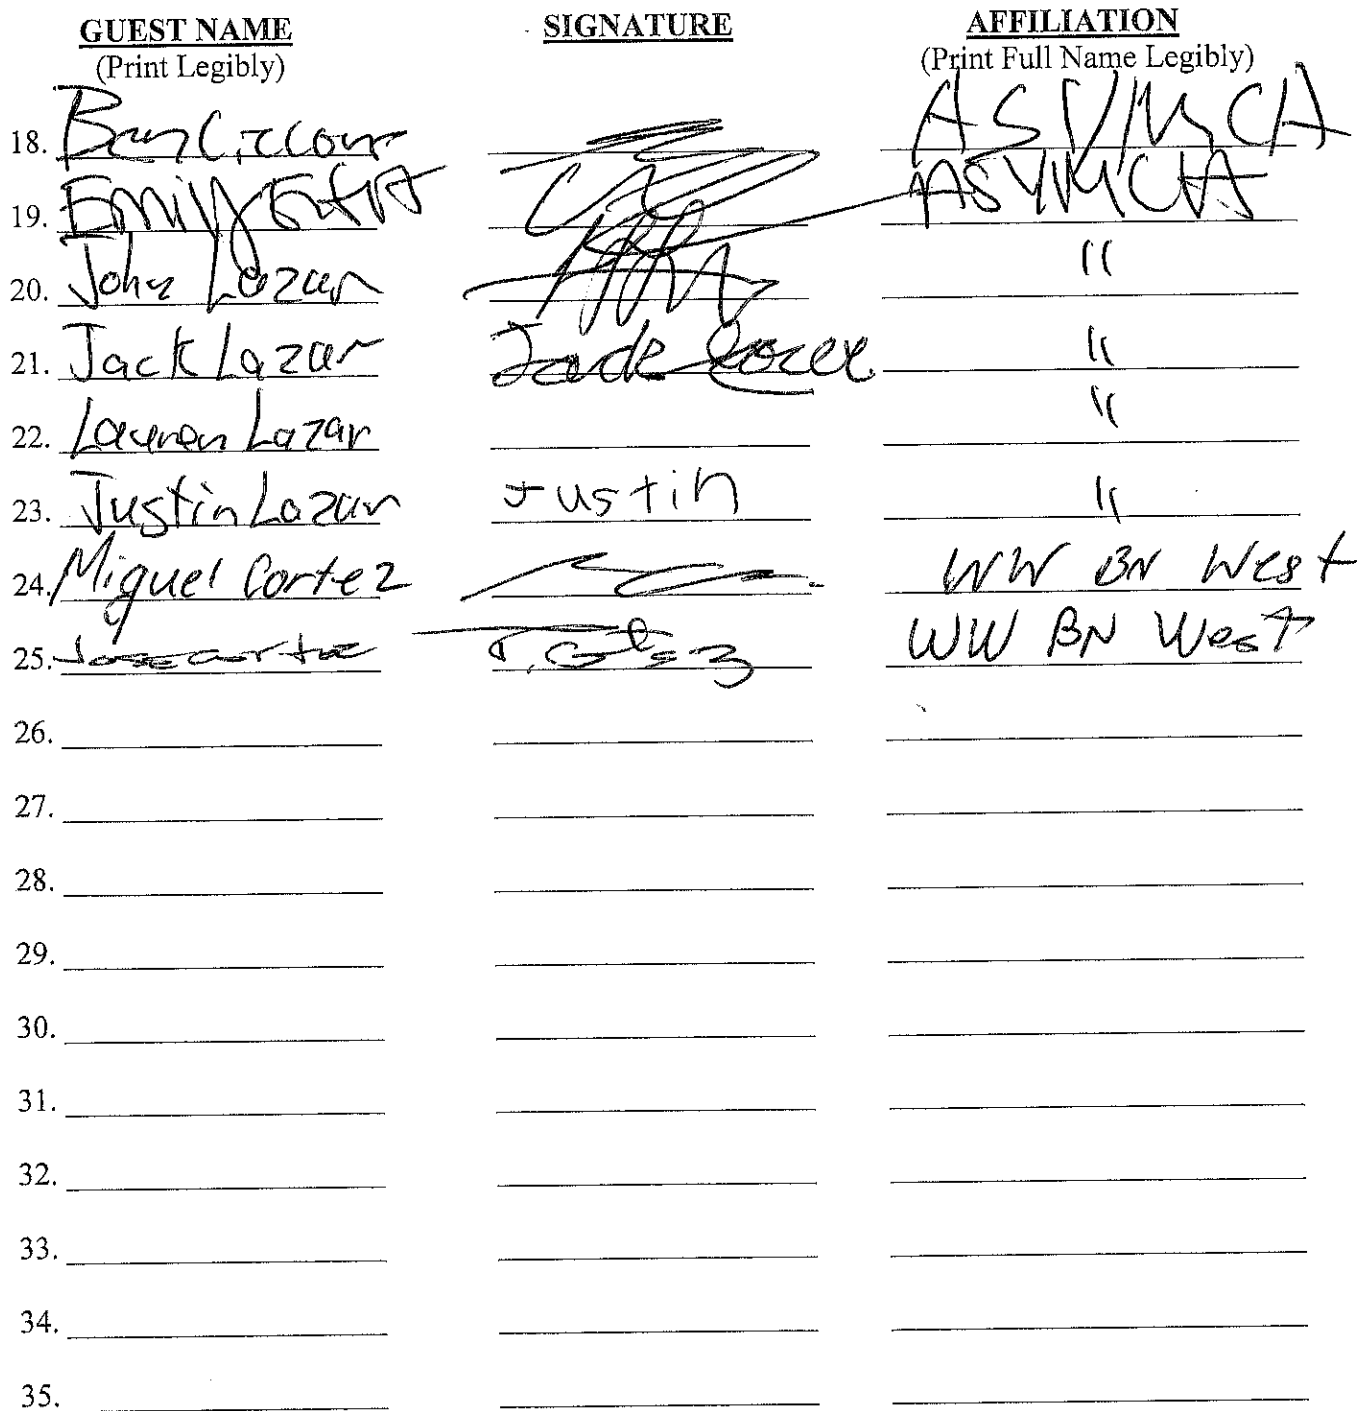 GUEST NAME SIGNATURE AFFILIATION
(Print Legibly) (Print Full Name Legibly)
18. Ben ASYMCA
19. Emily ASYMCA
20. John Lazar "
21. Jack Lazar Jack "
22. Lauren Lazar "
23. Justin Lazar Justin "
24. Miguel Cortez WW BN West
25. Jose Cortez WW BN West
26.
27.
28.
29.
30.
31.
32.
33.
34.
35.